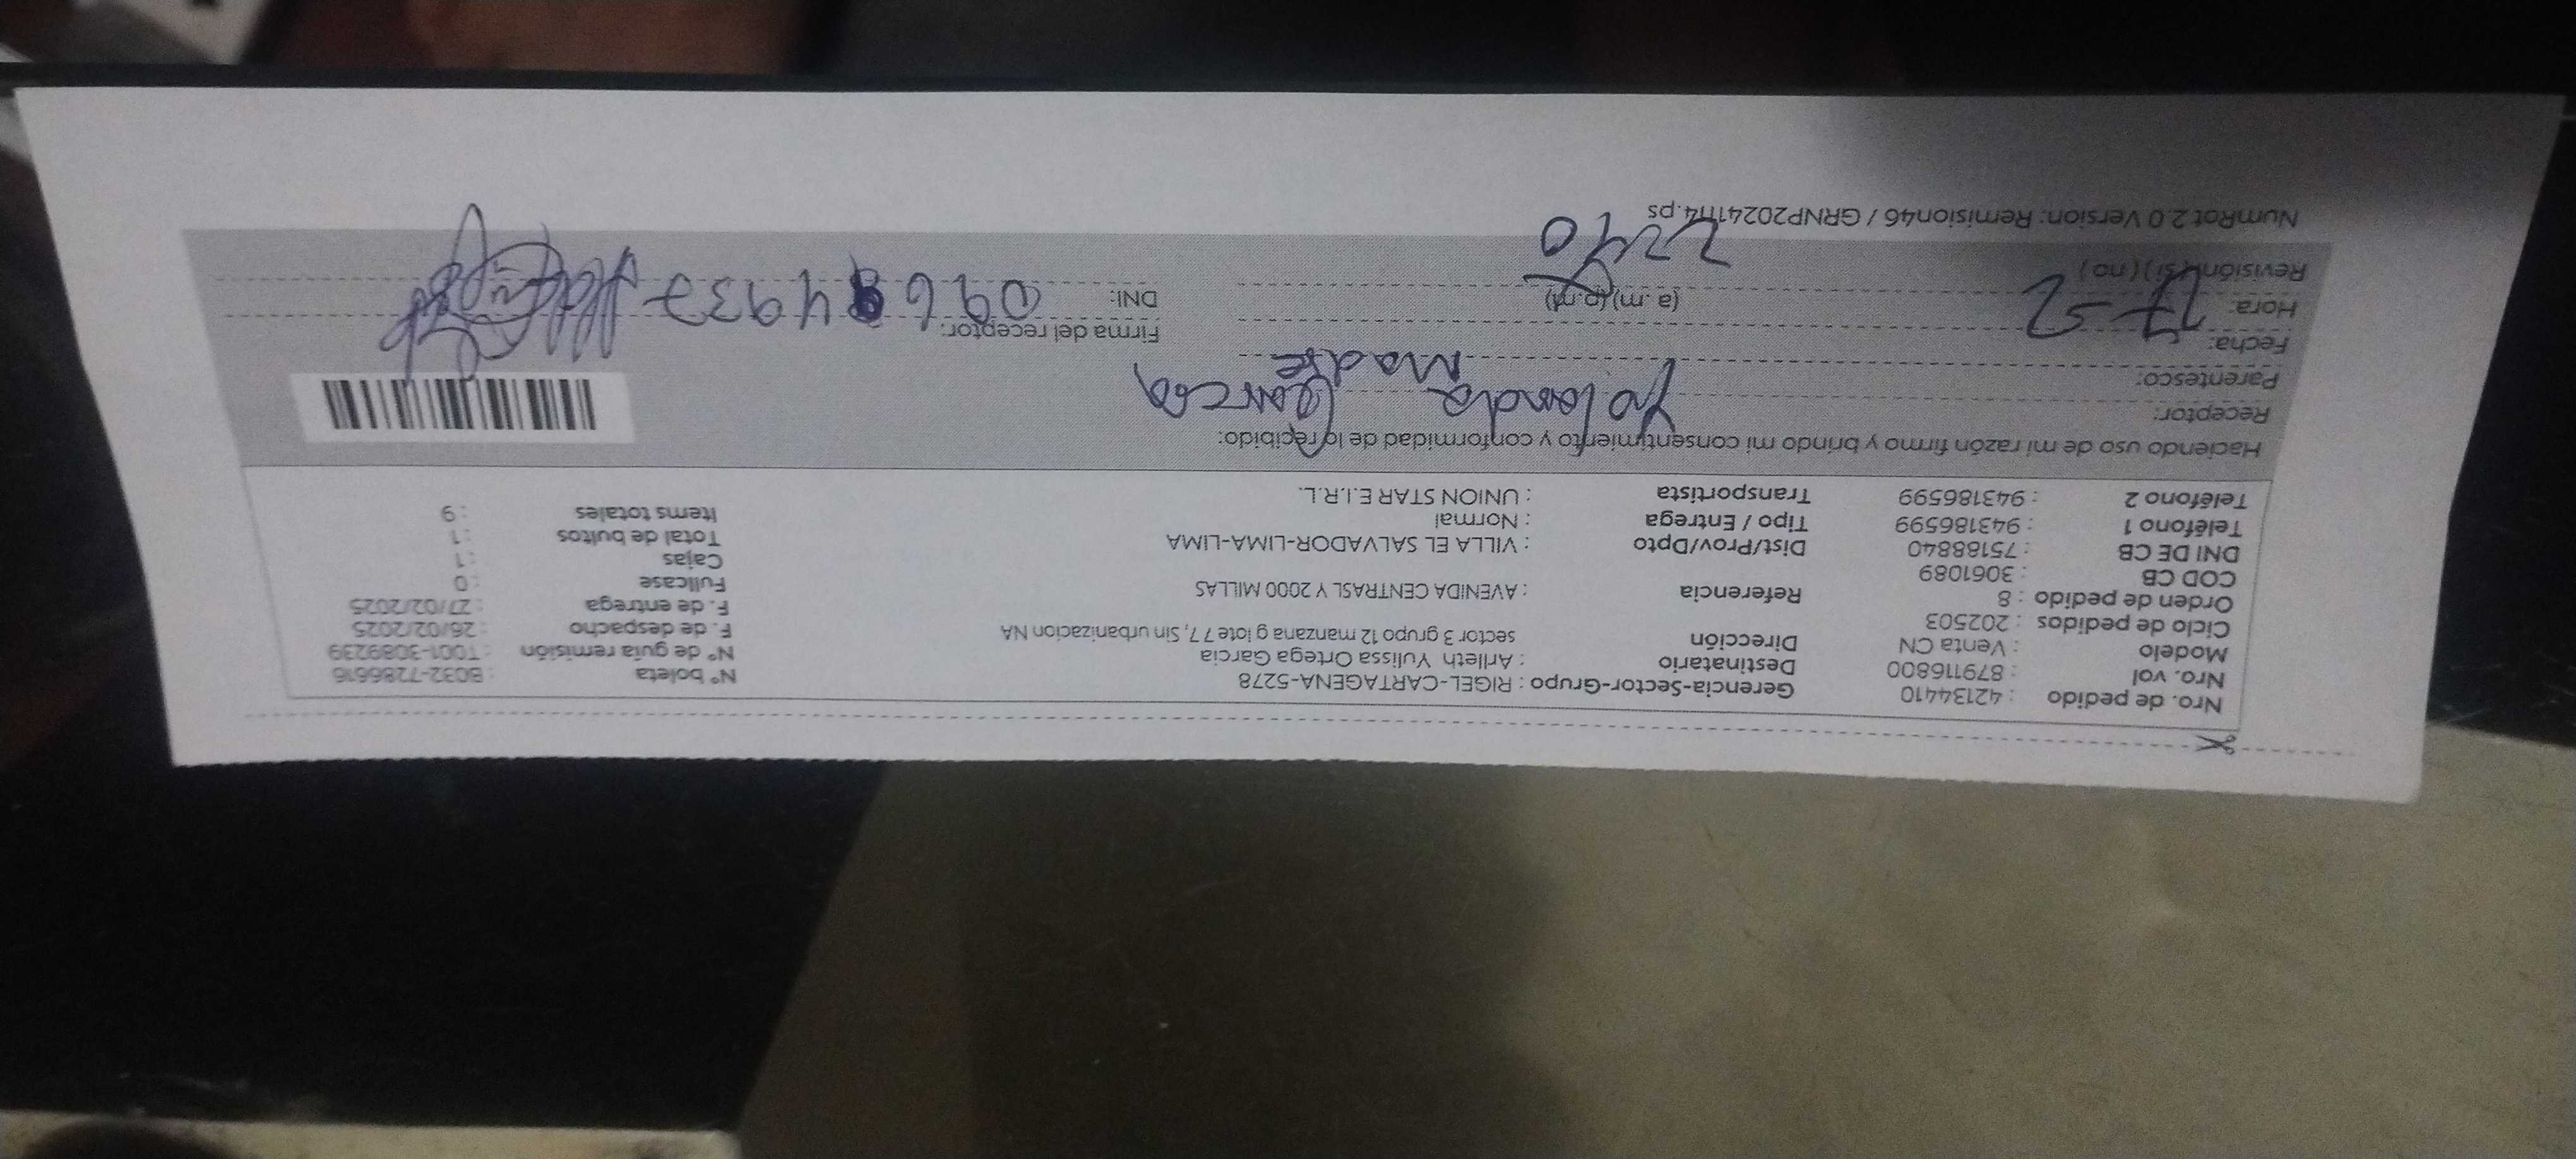 Nro. de pedido : 42134410 Gerencia-Sector-Grupo : RIGEL-CARTAGENA-5278 N° boleta : B032-7286616
Nro. vol : 879116800 Destinatario : Arlleth Yulissa Ortega Garcia N° de guía remisión : T001-3089239
Modelo : Venta CN Dirección sector 3 grupo 12 manzana g lote 7 7, Sin urbanizacion NA F. de despacho : 26/02/2025
Ciclo de pedidos : 202503 F. de entrega : 27/02/2025
Orden de pedido : 8 Referencia : AVENIDA CENTRASL Y 2000 MILLAS Fullcase : 0
COD CB : 3061089 Cajas : 1
DNI DE CB : 75188840 Dist/Prov/Dpto : VILLA EL SALVADOR-LIMA-LIMA Total de bultos : 1
Teléfono 1 : 943186599 Tipo / Entrega : Normal Items totales : 9
Teléfono 2 : 943186599 Transportista : UNION STAR E.I.R.L.
Haciendo uso de mi razón firmo y brindo mi consentimiento y conformidad de lo recibido:
Receptor: Yolanda
Parentesco: Madre
Fecha: Firma del receptor:
Hora: (a.m) (p.m) DNI:
Revisión (si) (no)
NumRot 2.0 Version: Remision46 / GRNP20241114.ps